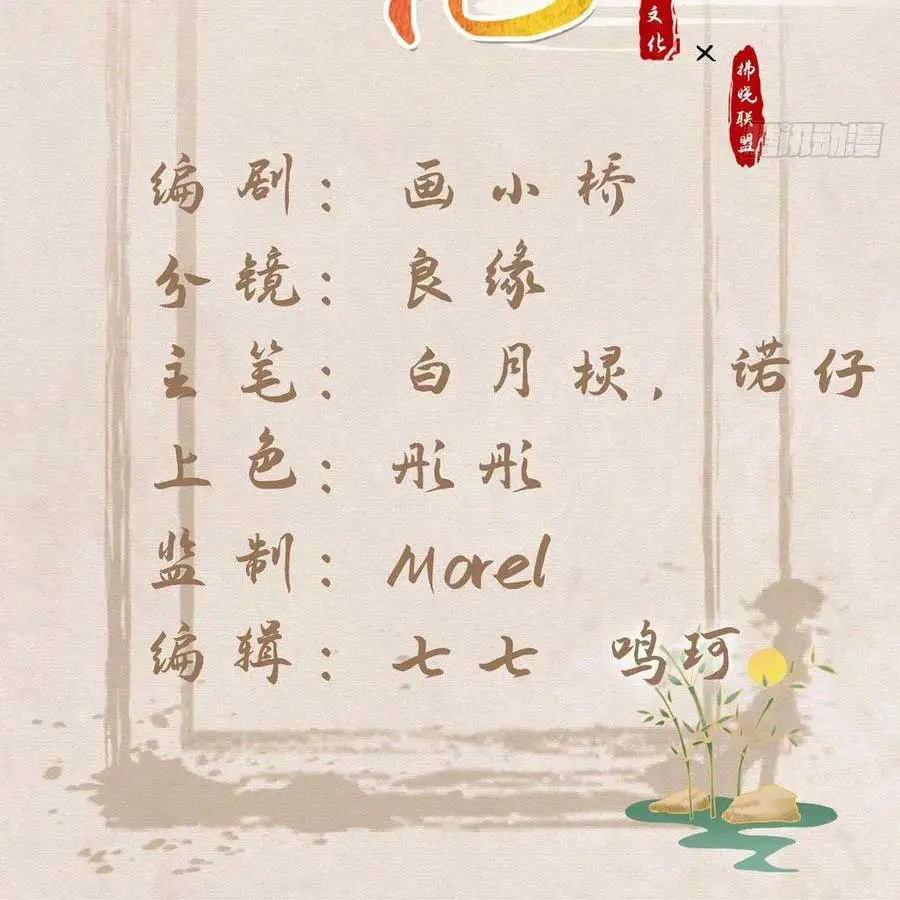 文化
×
拂晓联盟
腾讯动漫
编剧：画小桥
分镜：良缘
主笔：白月棂，诺仔
上色：彤彤
监制：Morel
编辑：七七 鸣珂